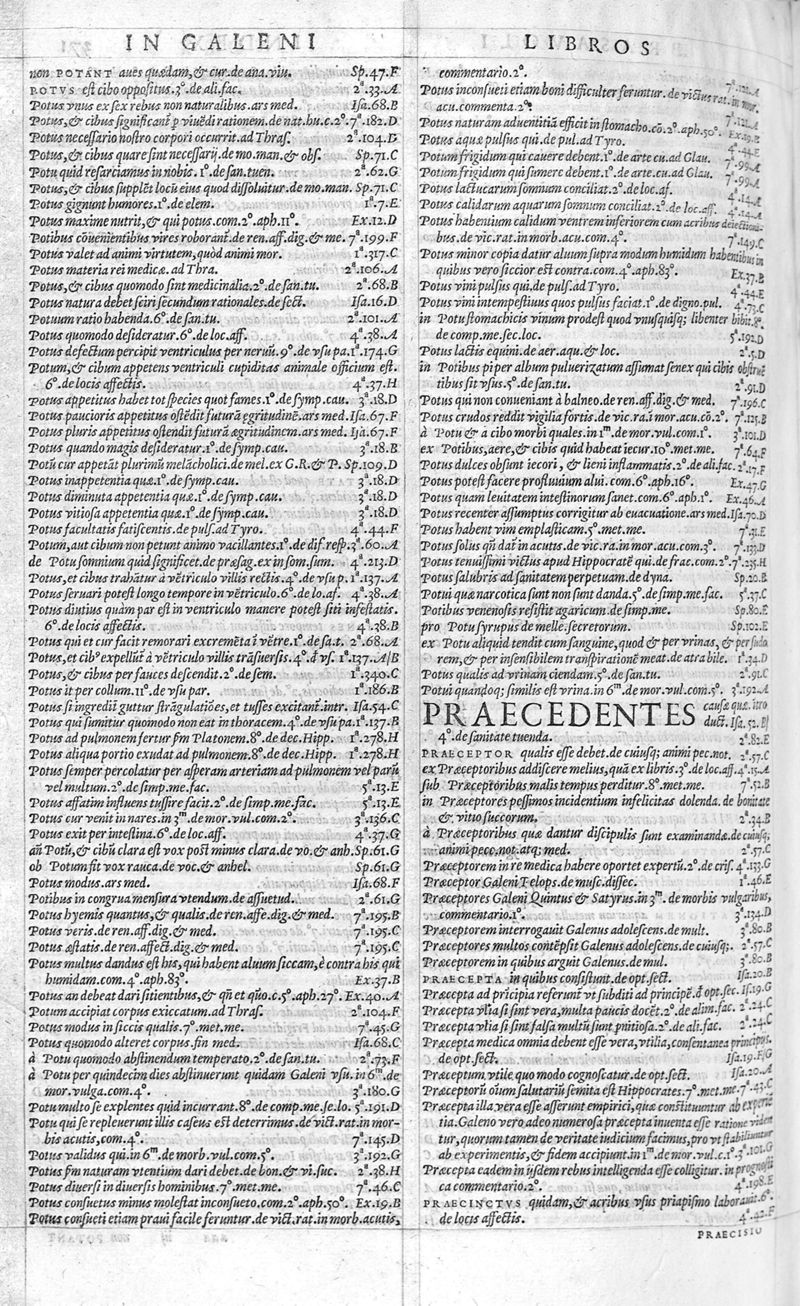 IN GALENI
non POTANT aues quædam, & cur. de ana. viu. Sp. 47. F
POTVS est cibo oppositus. 3°. de ali. fac. 2ª. 33. A
Potus vnus ex sex rebus non naturalibus. ars med. Isa. 68. B
Potus, & cibus significant
Potus necessario nostro corpori occurrit. ad Thras. 2ª. 104. D
Potus, & cibus quare sint necessarij. de mo. man. & obs. Sp. 71. C
Potu quid resarciamus in nobis. 1°. de san. tuen. 2ª. 62. G
Potus, & cibus supplēt locū eius quod dissoluitur. de mo. man. Sp. 71. C
Potus gignunt humores. 1°. de elem. 1ª. 7. E
Potus maxime nutrit, & qui potus. com. 2°. aph. 11°. Ex. 12. D
Potibus cōuenientibus vires roborant. de ren. aff. dig. & me. 7ª. 199. F
Potus valet ad animi virtutem, quòd animi mor. 1ª. 317. C
Potus materia rei medicæ. ad Thra. 2ª. 106. A
Potus, & cibus quomodo sint medicinalia. 2°. de san. tu. 2ª. 68. B
Potus natura debet sciri secundum rationales. de sect. Isa. 16. D
Potuum ratio habenda. 6°. de san. tu. 2ª. 101. A
Potus quomodo desideratur. 6°. de loc. aff. 4ª. 38. A
Potus defectum percipit ventriculus per neruū. 9°. de vsu pa. 1ª. 174. G
Potum, & cibum appetens ventriculi cupiditas animale officium est.
6°. de locis affectis. 4ª. 37. H
Potus appetitus habet tot species quot fames. 1°. de symp. cau. 3ª. 18. D
Potus paucioris appetitus ostēdit futurā egritudinē. ars med. Isa. 67. F
Potus pluris appetitus ostendit futurā ægritudinem. ars med. Isa. 67. F
Potus quando magis desideratur. 1°. de symp. cau. 3ª. 18. B
Potū cur appetāt plurimū melācholici. de mel. ex G. R. & P. Sp. 109. D
Potus inappetentia quæ. 1°. de symp. cau. 3ª. 18. D
Potus diminuta appetentia quæ. 1°. de symp. cau. 3ª. 18. D
Potus vitiosa appetentia quæ. 1°. de symp. cau. 3ª. 18. D
Potus facultatis fatiscentis. de puls. ad Tyro. 4ª. 44. F
Potum, aut cibum non petunt animo vacillantes. 1°. de dif. resp. 3ª. 60. A
de Potu somnium quid significet. de præsag. ex insom. sum. 4ª. 213. D
Potus, et cibus trahātur à vētriculo villis rectis. 4°. de vsu p. 1ª. 137. A
Potus seruari potest longo tempore in vētriculo. 6°. de lo. af. 4ª. 38. A
Potus diutius quàm par est in ventriculo manere potest siti infestatis.
6°. de locis affectis. 4ª. 38. B
Potus qui et cur facit remorari excremēta ī vētre. 1°. de sa. t. 2ª. 68. A
Potus, et cib⁹ expellūt à vētriculo villis trāsuersis. 4°. d vs. 1ª. 137. A/B
Potus, & cibus per fauces descendit. 2°. de sem. 1ª. 340. C
Potus it per collum. 11°. de vsu par. 1ª. 186. B
Potus si ingredi guttur strāgulatiōes, et tusses excitant. intr. Isa. 54. C
Potus qui sumitur quomodo non eat in thoracem. 4°. de vsu pa. 1ª. 137. B
Potus ad pulmonem fertur sm Platonem. 8°. de dec. Hipp. 1ª. 278. H
Potus aliqua portio exudat ad pulmonem. 8°. de dec. Hipp. 1ª. 278. H
Potus semper percolatur per asperam arteriam ad pulmonem vel parū
vel multum. 2°. de simp. me. fac. 5ª. 13. E
Potus affatim influens tussire facit. 2°. de simp. me. fac. 5ª. 13. E
Potus cur venit in nares. in 3ᵐ. de mor. vul. com. 2°. 3ª. 136. C
Potus exit per intestina. 6°. de loc. aff. 4ª. 37. G
añ Potū, & cibū clara est vox post minus clara. de vo. & anh. Sp. 61. G
ob Potum fit vox rauca. de voc. & anhel. Sp. 61. G
Potus modus. ars med. Isa. 68. F
Potibus in congrua mensura vtendum. de assuetud. 2ª. 61. G
Potus hyemis quantus, & qualis. de ren. affe. dig. & med. 7ª. 195. B
Potus veris. de ren. aff. dig. & med. 7ª. 195. C
Potus æstatis. de ren. affect. dig. & med. 7ª. 195. C
Potus multus dandus est his, qui habent aluum siccam, è contra his qui
humidam. com. 4°. aph. 83°. Ex. 37. B
Potus an debeat dari sitientibus, & qñ et quō. c. 5°. aph. 27°. Ex. 40. A
Potum accipiat corpus exiccatum. ad Thras. 2ª. 104. F
Potus modus in siccis qualis. 7°. met. me. 7ª. 45. G
Potus quomodo alteret corpus. fin med. Isa. 68. C
à Potu quomodo abstinendum temperato. 2°. de san. tu. 2ª. 73. F
à Potu per quindecim dies abstinuerunt quidam Galeni vsu. in 6ᵐ. de
mor. vulga. com. 4°. 3ª. 180. G
Potu multo se explentes quid incurrant. 8°. de comp. me. se. lo. 5ª. 191. D
Potu qui se repleuerunt illis caseus est deterrimus. de vict. rat. in mor-
bis acutis, com. 4°. 7ª. 145. D
Potus validus qui. in 6ᵐ. de morb. vul. com. 5°. 3ª. 192. G
Potus sm naturam vtentium dari debet. de bon. & vi. suc. 2ª. 38. H
Potus diuersi in diuersis hominibus. 7°. met. me. 7ª. 46. C
Potus consuetus minus molestat inconsueto. com. 2°. aph. 50°. Ex. 19. B
Potus consueti etiam praui facile feruntur. de vict. rat. in morb. acutis,
LIBROS
commentario. 2°.
Potus inconsueti etiam boni difficulter feruntur. de victus rat. in mor.
acu. commenta. 2°.
Potus naturam aduentitiā efficit in stomacho. cō. 2°. aph. 50°. Ex. 19. B
Potus aqua pulsus qui. de pul. ad Tyro. 4ª. 44. E
Potum frigidum qui cauere debent. 1°. de arte cu. ad Glau. 7ª. 99. A
Potum frigidum qui sumere debent. 1°. de arte cu. ad Glau. 7ª. 99. A
Potus lactucarum somnum conciliat. 2°. de loc. af. 4ª. 14. A
Potus calidarum aquarum somnum conciliat. 2°. de loc. aff. 4ª. 14. A
Potus habentium calidum ventrem inferiorem cum acribus deiectioni-
bus. de vic. rat. in morb. acu. com. 4°. 7ª. 149. C
Potus minor copia datur aluum supra modum humidum habentibus in
quibus vero siccior est contra. com. 4°. aph. 83°. Ex. 37. B
Potus vini pulsus qui. de puls. ad Tyro. 4ª. 44. E
Potus vini intempestiuus quos pulsus faciat. 1°. de digno. pul. 4ª. 73. C
in Potu stomachicis vinum prodest quod vnusquisq; libenter bibit. 8°.
de comp. me. sec. loc. 5ª. 192. D
Potus lactis equini. de aer. aqu. & loc. 2ª. 5. D
in Potibus piper album puluerizatum assumat senex qui cibis obstruē
tibus sit vsus. 5°. de san. tu. 2ª. 91. D
Potus qui non conueniant à balneo. de ren. aff. dig. & med. 7ª. 196. C
Potus crudos reddit vigilia fortis. de vic. ra. ī mor. acu. cō. 2°. 7ª. 125. B
à Potu & a cibo morbi quales. in 1ᵐ. de mor. vul. com. 1°. 3ª. 101. D
ex Potibus, aere, & cibis quid habeat iecur. 10°. met. me. 7ª. 64. F
Potus dulces obsunt iecori, & lieni inflammatis. 2°. de ali. fac. 2ª. 17. F
Potus potest facere profluuium alui. com. 6°. aph. 16°. Ex. 47. G
Potus quam leuitatem intestinorum sanet. com. 6°. aph. 1°. Ex. 46. A
Potus recenter assumptus corrigitur ab euacuatione. ars med. Isa. 70. D
Potus habent vim emplasticam. 5°. met. me. 7ª. 31. E
Potus solus qñ dat in acutis. de vic. ra. in mor. acu. com. 3°. 7ª. 133. D
Potus tenuissimi victus apud Hippocratē qui. de frac. com. 2°. 7ª. 235. H
Potus salubris ad sanitatem perpetuam. de dyna. Sp. 20. B
Potui quæ narcotica sunt non sunt danda. 5°. de simp. me. fac. 5ª. 37. C
Potibus venenosis resistit agaricum. de simp. me. Sp. 80. E
pro Potu syrupus de melle. secretorum. Sp. 102. E
ex Potu aliquid tendit cum sanguine, quod & per vrinas, & per sudo
rem, & per insensibilem transpirationē meat. de atra bile. 1ª. 34. D
Potus qualis ad vrinam ciendam. 5°. de san. tu. 2ª. 91. C
Potui quandoq; similis est vrina. in 6ᵐ. de mor. vul. com. 5°. 3ª. 192. A
PRAECEDENTES causæ quæ. itro
duct. Isa. 52. B/
4°. de sanitate tuenda. 2ª. 82. E
PRAECEPTOR qualis esse debet. de cuiusq; animi pec. not. 2ª. 57. C
ex Præceptoribus addiscere melius, quā ex libris. 3°. de loc. aff. 4ª. 15. A
sub Præceptoribus malis tempus perditur. 8°. met. me. 7ª. 52. B
in Præceptores pessimos incidentium infelicitas dolenda. de bonitate
& vitio succorum. 2ª. 34. B
à Præceptoribus quæ dantur discipulis sunt examinanda. de cuiusq;
animi pecc. not. atq; med. 2ª. 57. C
Præceptorem in re medica habere oportet expertū. 2°. de cris. 4ª. 133. G
Præceptor Galeni Pelops. de musc. dissec. 1ª. 46. E
Præceptores Galeni Quintus & Satyrus. in 3ᵐ. de morbis vulgaribus,
commentario. 1°. 3ª. 134. D
Præceptorem interrogauit Galenus adolescens. de mult. 3ª. 80. B
Præceptores multos contēpsit Galenus adolescens. de cuiusq;. 2ª. 57. C
Præceptorem in quibus arguit Galenus. de mul. 3ª. 80. B
PRAECEPTA in quibus consistunt. de opt. sect. Isa. 20. B
Præcepta ad pricipia referunt vt subditi ad principē. d opt. sec. Isa. 19. G
Præcepta vtlia si sint vera, multa paucis docēt. 2°. de alim. fac. 2ª. 24. C
Præcepta vtlia si sint falsa multū sunt pnitiosa. 2°. de ali. fac. 2ª. 24. C
Præcepta medica omnia debent esse vera, vtilia, consentanea principus.
de opt. sect. Isa. 19. F/G
Præceptum vtile quo modo cognoscatur. de opt. sect. Isa. 20. A
Præceptorū oīum salutariū semita est Hippocrates. 7°. met. me. 7ª. 43. C
Præcepta illa vera esse asserunt empirici, quæ constituuntur ab experiē
tia. Galeno vero adeo numerosa præcepta inuenta esse ratione viden
tur, quorum tamen de veritate iudicium facimus, pro vt stabiliuntur
ab experimentis, & fidem accipiunt. in 1ᵐ. de mor. vul. c. 1°. 3ª. 101. G
Præcepta eadem in ijsdem rebus intelligenda esse colligitur. in prognosti
ca commentario. 2°. 4ª. 198. E
PRAECINCTVS quidam, & acribus vsus priapismo laborauit. 6°.
de locis affectis. 4ª. 42. F
PRAECISIO